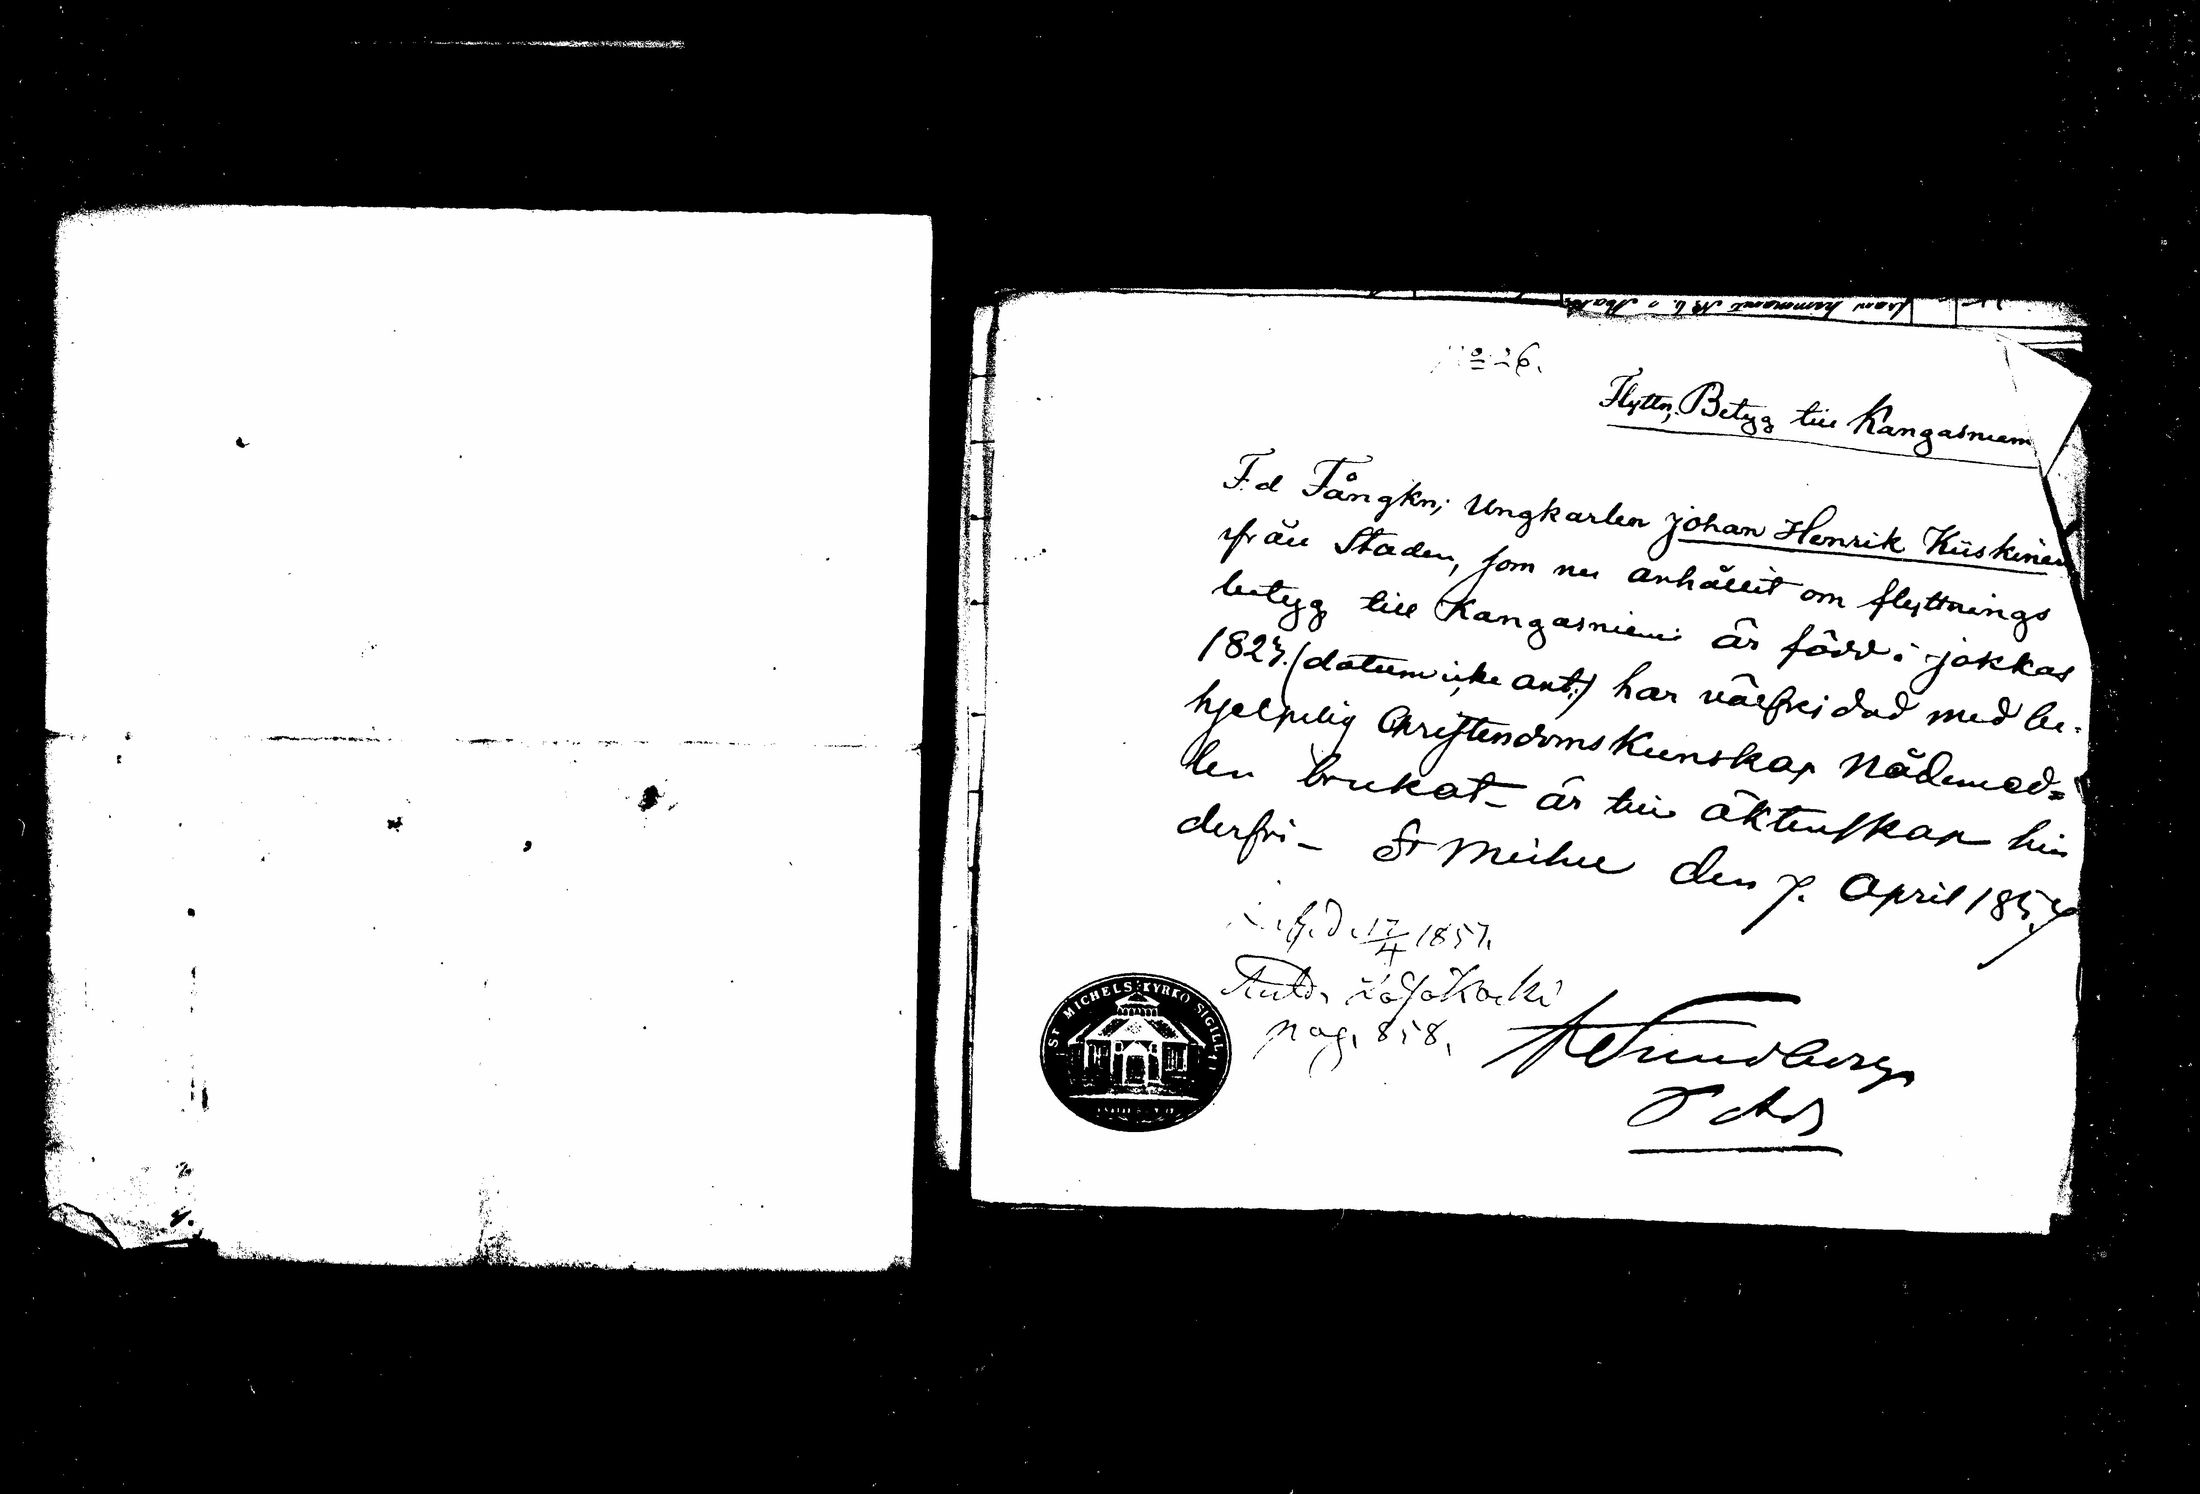 No 26.
Flyttn, Betyg till Kangasniem
F.d Fångkn; Ungkarlen Johan Henrik Kiiskinen
från Staden, som nu anhållit om flyttnings
betyg till Kangasniemi är född i jokkas
1827. (datum icke ant.) har välfrejdad med be-
hjelpelig Christendoms Kunskap Nådemed=
len brukat - är till äktenskap hin
derfri - St Michel den 7. April 1857
17/4 1857.
pag. 858.
Sundberg
ST MICHELS KYRKO SIGILL